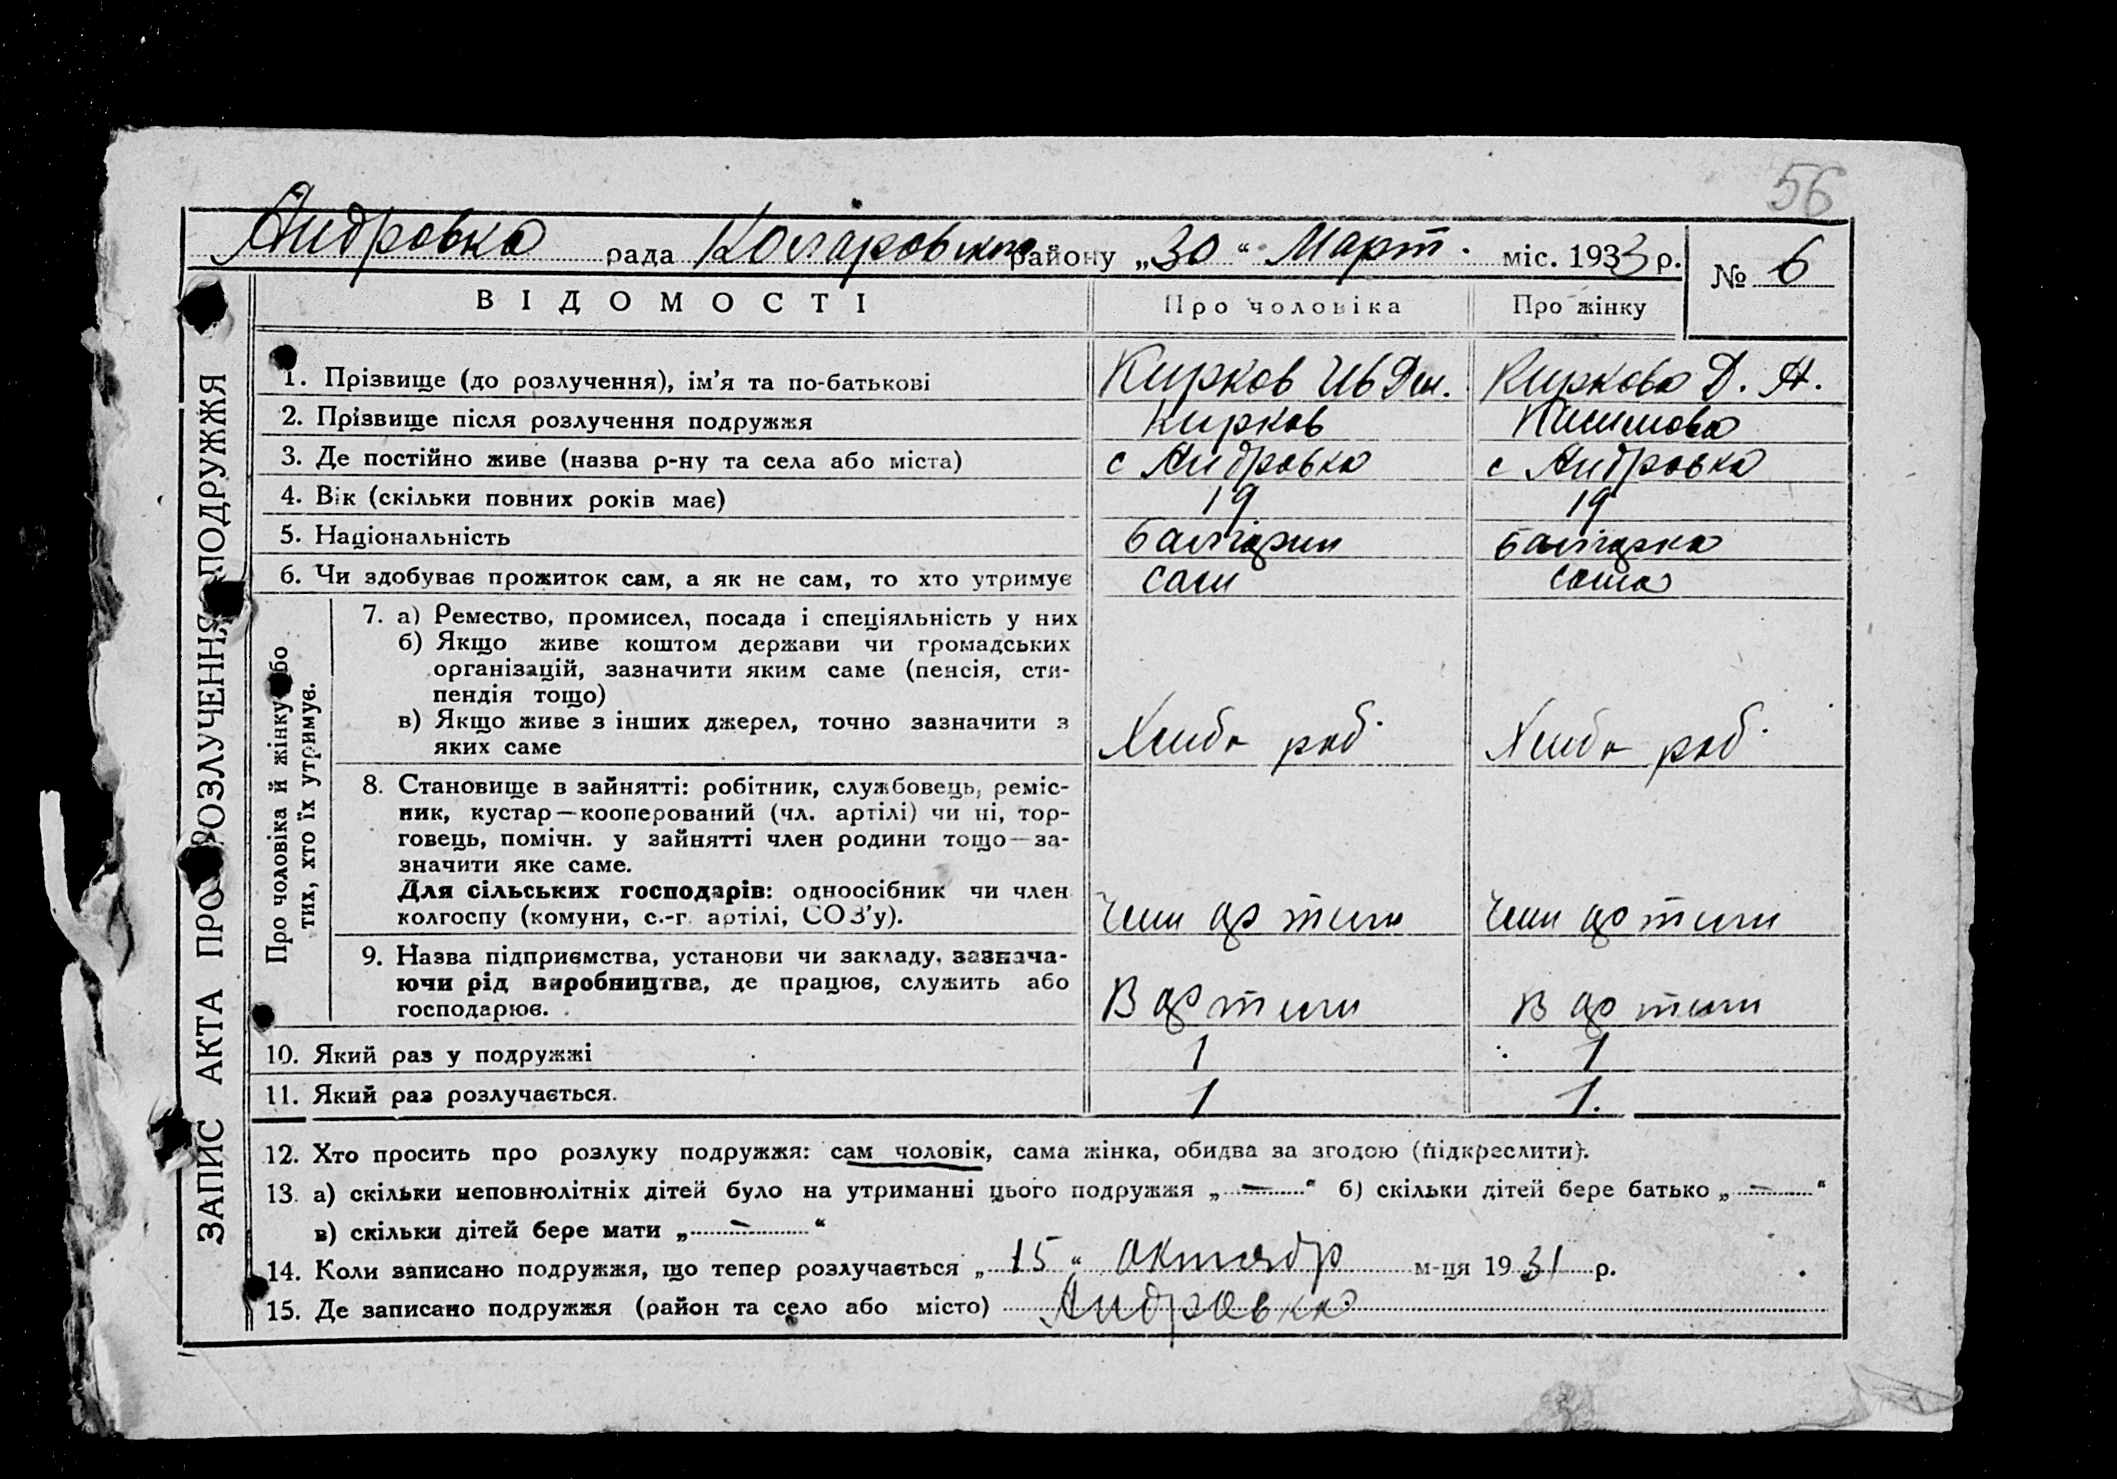 56
Андровка рада Коларовского району „30“ Март. міс. 1933 р. № 6
ВІДОМОСТІ Про чоловіка Про жінку
1. Прізвище (до розлучення), ім’я та по-батькові Кирков Ив Ден. Киркова Д. А.
2. Прізвище після розлучення подружжя Кирков
3. Де постійно живе (назва р-ну та села або міста) с Андровка с Андровка
4. Вік (скільки повних років має) 19 19
5. Національність балгарин балгарка
6. Чи здобуває прожиток сам, а як не сам, то хто утримує сам сама
Про чоловіка й жінку або
тих, хто їх утримує.
7. а) Ремество, промисел, посада і спеціяльність у них
б) Якщо живе коштом держави чи громадських
організацій, зазначити яким саме (пенсія, сти-
пендія тощо)
в) Якщо живе з інших джерел, точно зазначити з
яких саме Хлибо роб. Хлибо роб.
8. Становище в зайнятті: робітник, службовець, реміс-
ник, кустар—кооперований (чл. артілі) чи ні, тор-
говець, помічн. у зайнятті член родини тощо—за-
значити яке саме.
Для сільських господарів: одноосібник чи член
колгоспу (комуни, с.-г. артілі, СОЗ’у). член артели член артели
9. Назва підприємства, установи чи закладу, зазнача-
ючи рід виробництва, де працює, служить або
господарює. В артели В артели
10. Який раз у подружжі 1 1
11. Який раз розлучається. 1 1.
12. Хто просить про розлуку подружжя: сам чоловік, сама жінка, обидва за згодою (підкреслити).
13. а) скільки неповнолітніх дітей було на утриманні цього подружжя „—“ б) скільки дітей бере батько „—“
в) скільки дітей бере мати „—“
14. Коли записано подружжя, що тепер розлучається „15“ октябр м-ця 1931 р.
15. Де записано подружжя (район та село або місто) Андровка
ЗАПИС АКТА ПРО РОЗЛУЧЕННЯ ПОДРУЖЖЯ